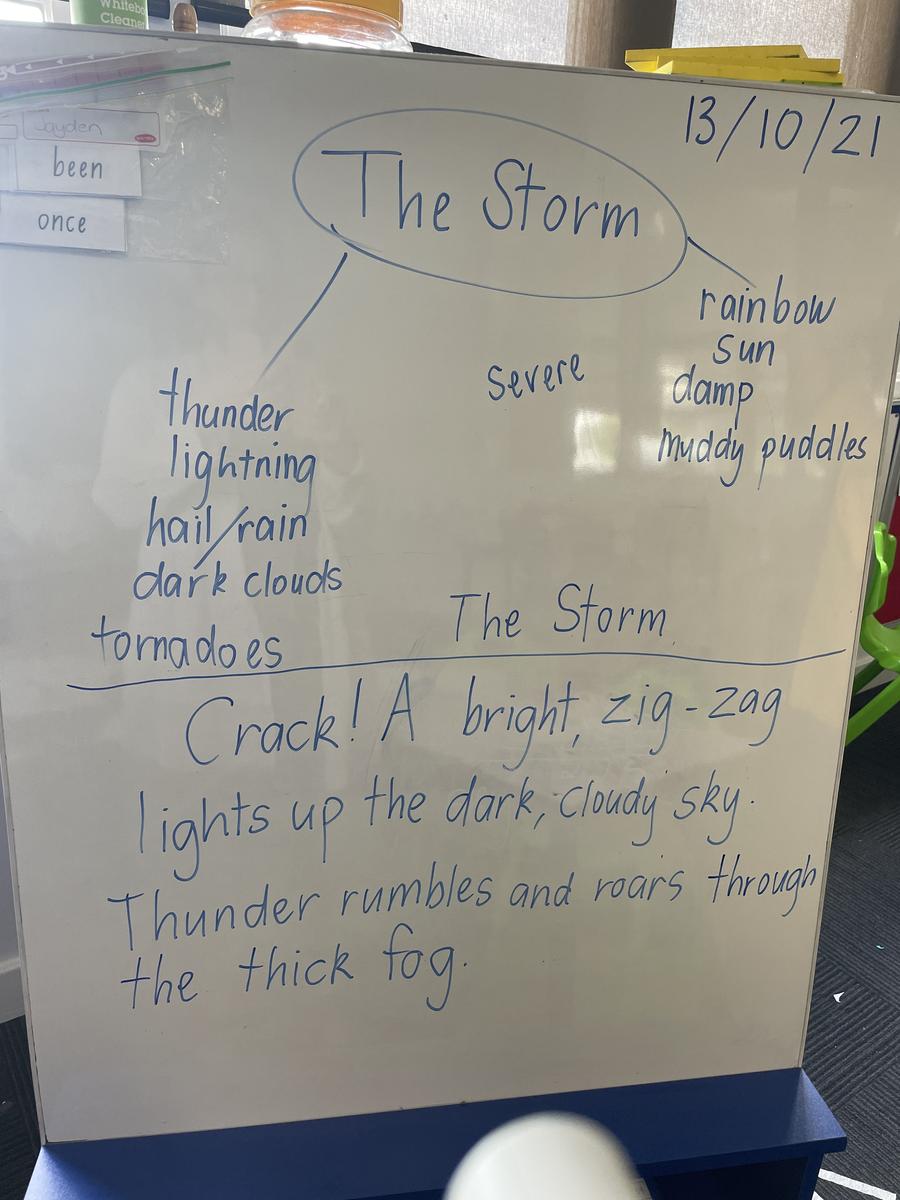 Whitebo
Cleaner
Jayden
been
once
13/10/21
The Storm
thunder
lightning
hail/rain
dark clouds
tornadoes
severe
rainbow
sun
damp
muddy puddles
The Storm
Crack! A bright, zig-zag
lights up the dark, cloudy sky.
Thunder rumbles and roars through
the thick fog.